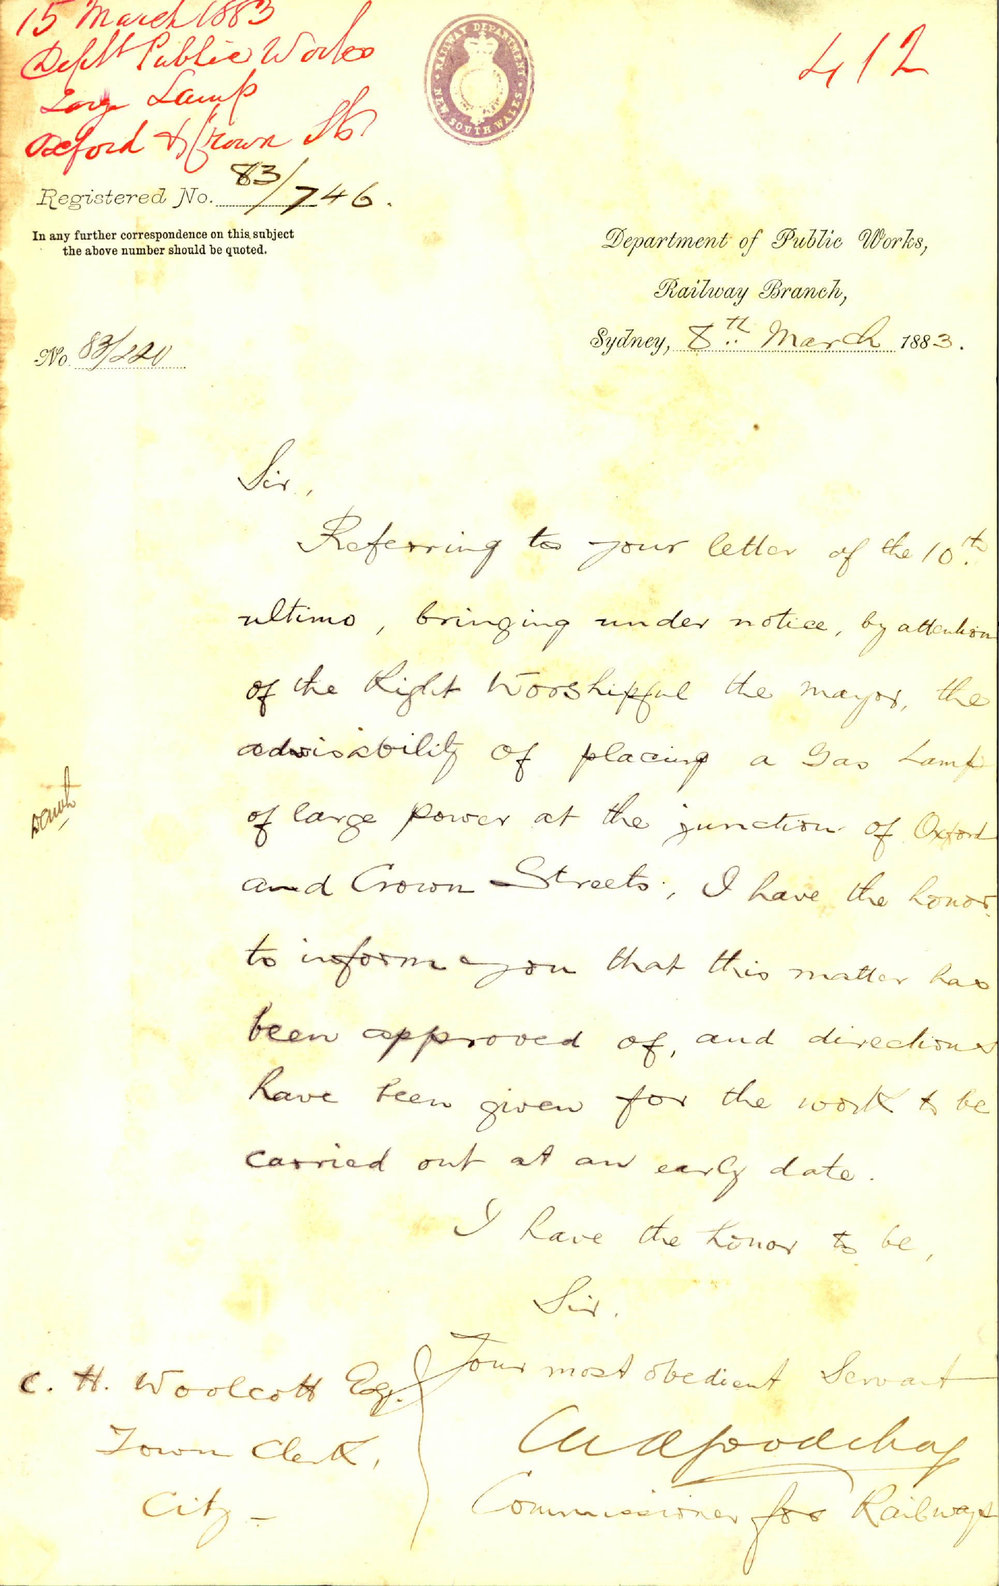 15 March 1883
Deptt Public Works
Large Lamp
Oxford & Crown Sts
412
RAILWAY DEPARTMENT
NEW SOUTH WALES
Registered No. 83/746.
In any further correspondence on this subject
the above number should be quoted.
Department of Public Works,
Railway Branch,
Sydney, 8th March 1883.
No 83/220
Sir,
Referring to your letter of the 10th
ultimo, bringing under notice, by attention
of the Right Worshipful the Mayor, the
advisability of placing a Gas Lamp
of large power at the junction of Oxford
and Crown Streets, I have the honor
to inform you that this matter has
been approved of, and directions
have been given for the work to be
carried out at an early date.
I have the honor to be,
Sir.
Your most obedient Servant
Chas A Goodchap
Commissioner for Railways
C. H. Woolcott Esq.
Town Clerk,
City